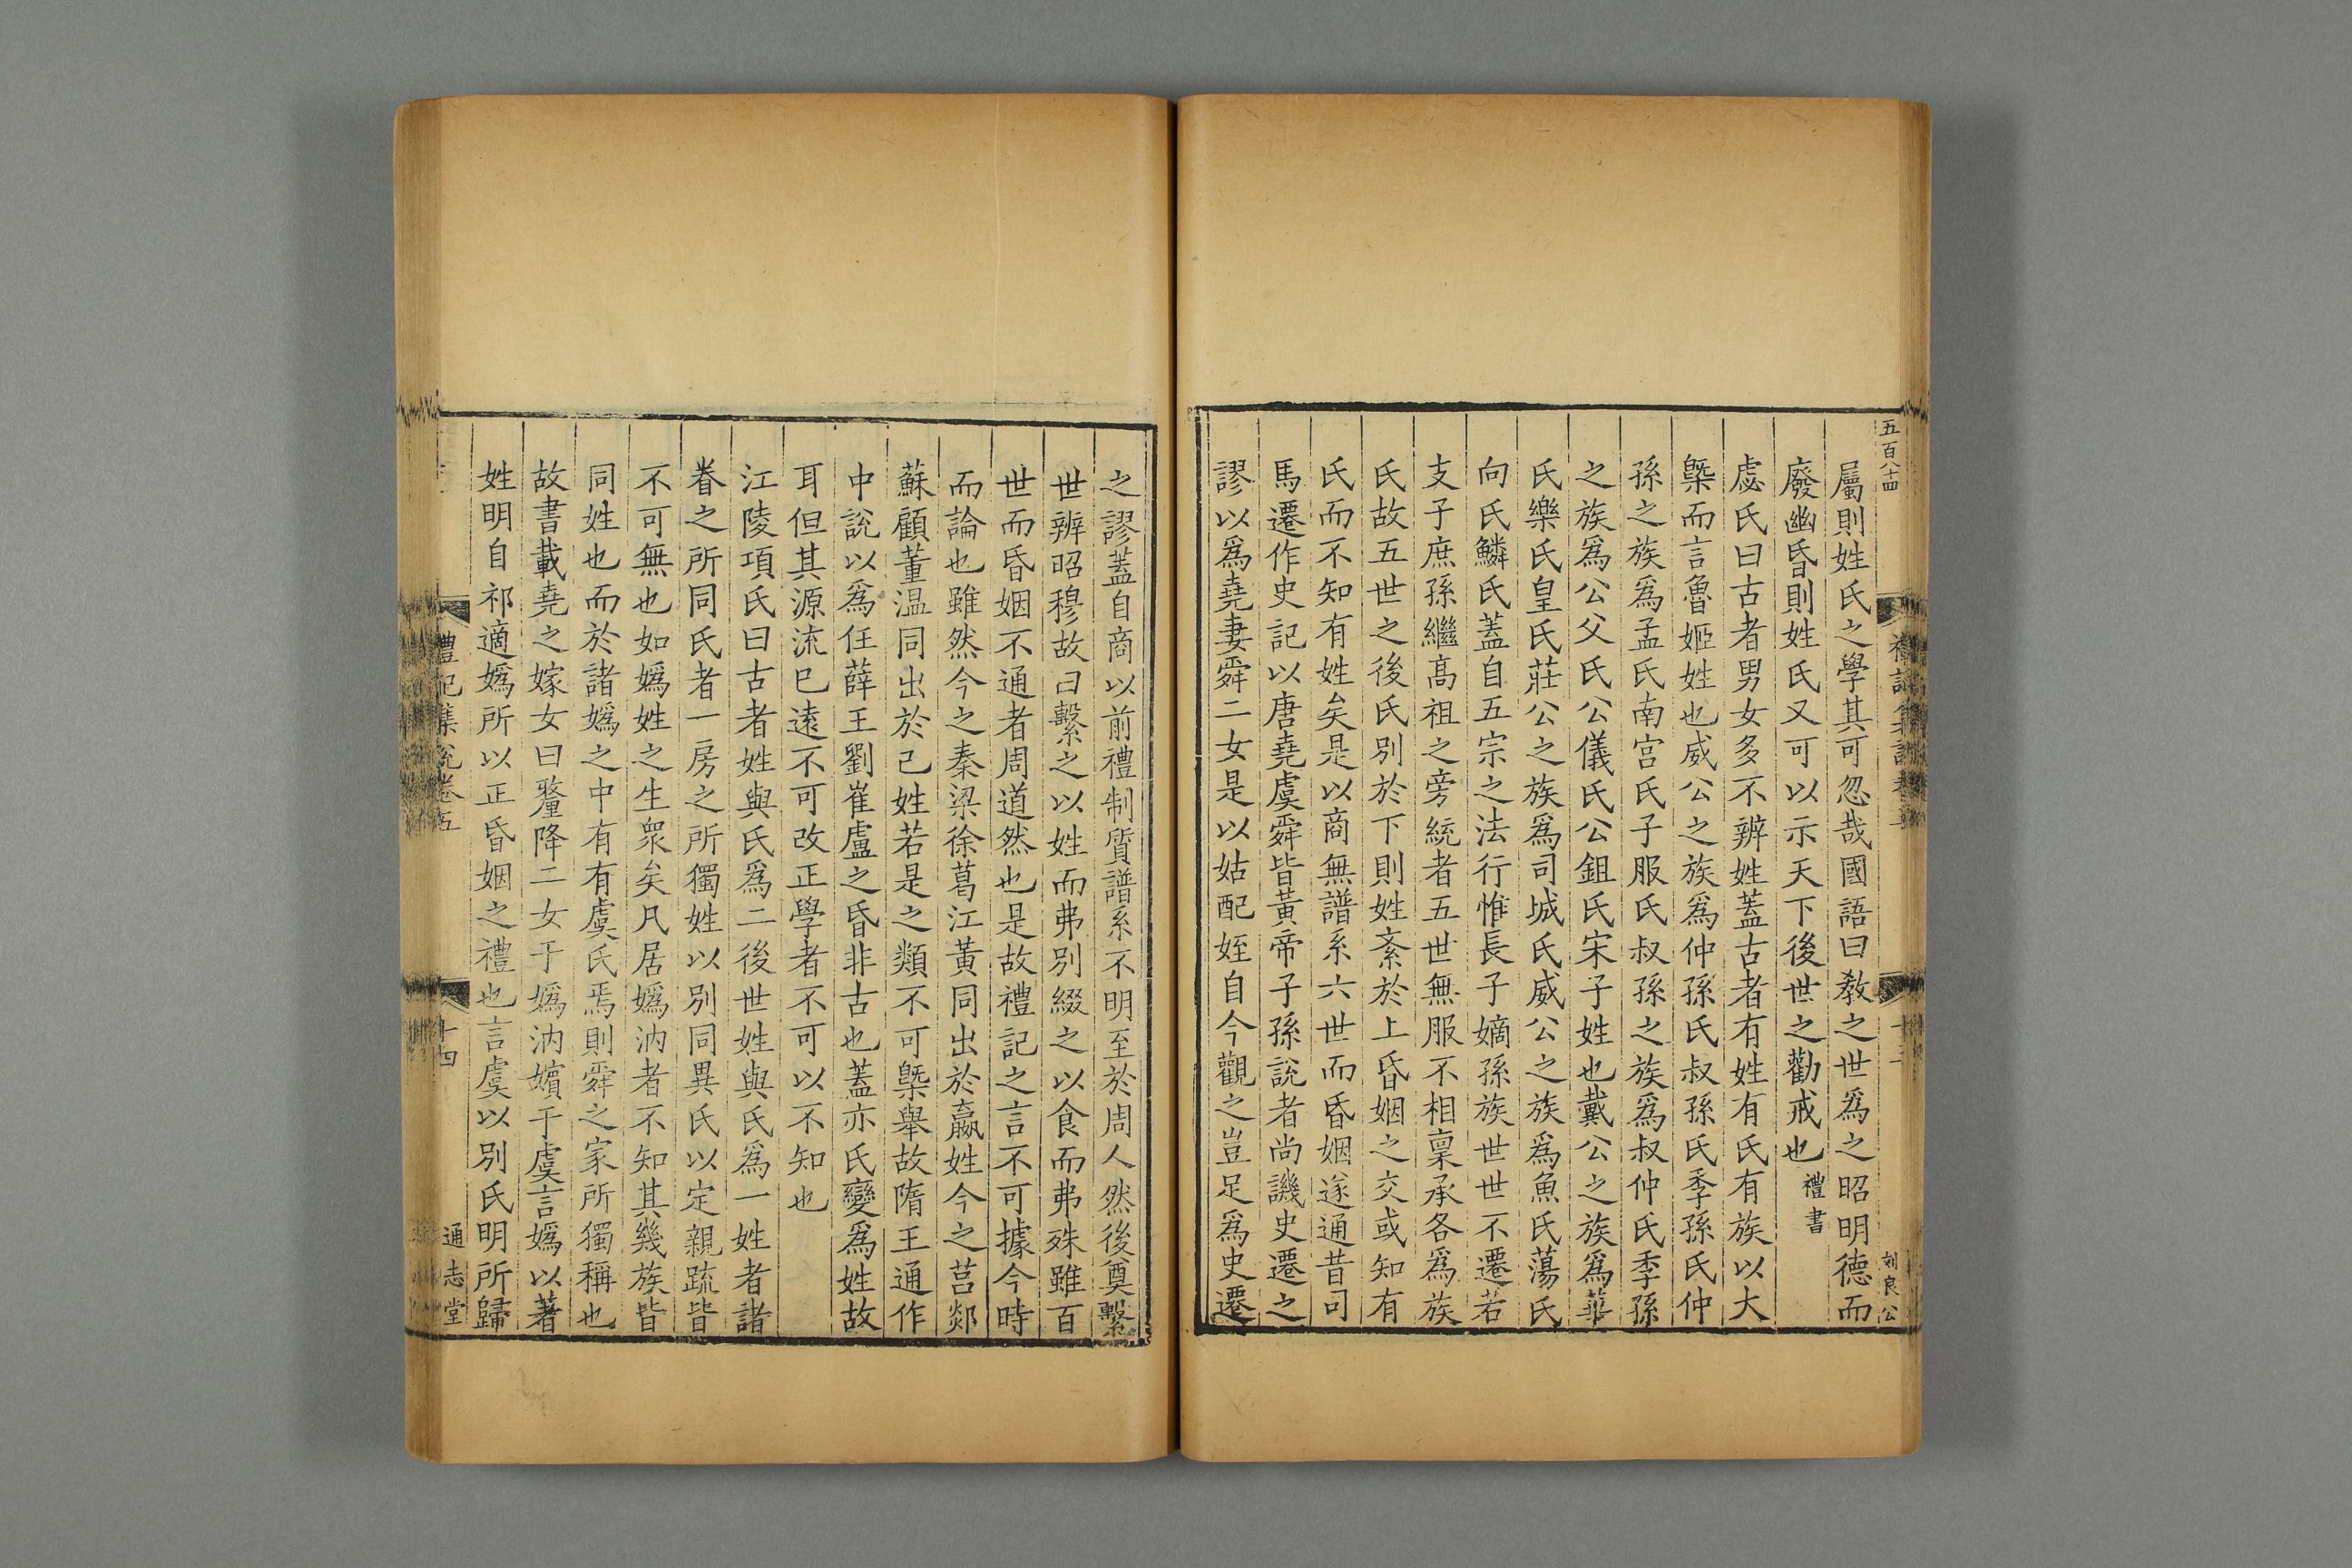 五百八十四
劉良公
屬則姓氏之學其可忽哉國語曰教之世爲之昭明德而
廢幽昏則姓氏又可以示天下後世之勸戒也禮書
慮氏曰古者男女多不辨姓蓋古者有姓有氏有族以大
槩而言魯姬姓也威公之族爲仲孫氏叔孫氏季孫氏仲
孫之族爲孟氏南宮氏子服氏叔孫之族爲叔仲氏季孫
之族爲公父氏公儀氏公鉏氏宋子姓也戴公之族爲華
氏樂氏皇氏莊公之族爲司城氏威公之族爲魚氏蕩氏
向氏鱗氏蓋自五宗之法行惟長子嫡孫族世世不遷若
支子庶孫繼高祖之旁統者五世無服不相稟承各爲族
氏故五世之後氏別於下則姓紊於上昏姻之交或知有
氏而不知有姓矣是以商無譜系六世而昏姻遂通昔司
馬遷作史記以唐堯虞舜皆黃帝子孫說者尚譏史遷之
謬以爲堯妻舜二女是以姑配姪自今觀之豈足爲史遷
之謬蓋自商以前禮制質譜系不明至於周人然後奠繫
世辨昭穆故曰繫之以姓而弗別綴之以食而弗殊雖百
世而昏姻不通者周道然也是故禮記之言不可據今時
而論也雖然今之秦梁徐葛江黃同出於嬴姓今之莒郯
蘇顧董温同出於己姓若是之類不可槩舉故隋王通作
中說以爲任薛王劉崔盧之昏非古也蓋亦氏變爲姓故
耳但其源流已遠不可改正學者不可以不知也
江陵項氏曰古者姓與氏爲二後世姓與氏爲一姓者諸
眷之所同氏者一房之所獨姓以別同異氏以定親疏皆
不可無也如嬀姓之生衆矣凡居嬀汭者不知其幾族皆
同姓也而於諸嬀之中有有虞氏焉則舜之家所獨稱也
故書載堯之嫁女曰釐降二女于嬀汭嬪于虞言嬀以著
姓明自祁適嬀所以正昏姻之禮也言虞以別氏明所歸
禮記集說卷五
十四
通志堂